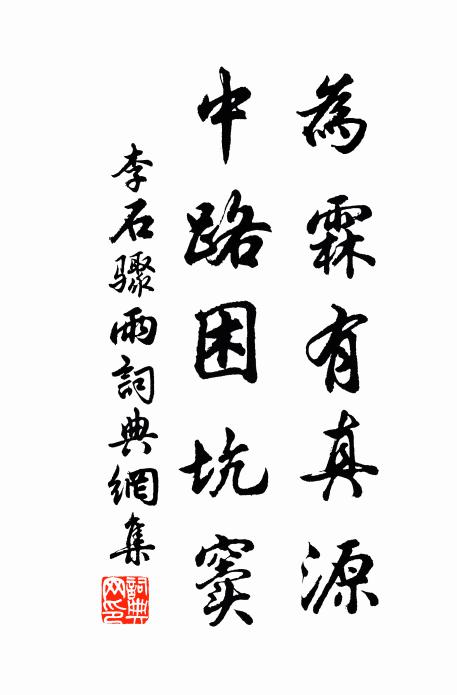 為霖有真源
中路困坑窞
李石驟雨詞典網集
詞典網印